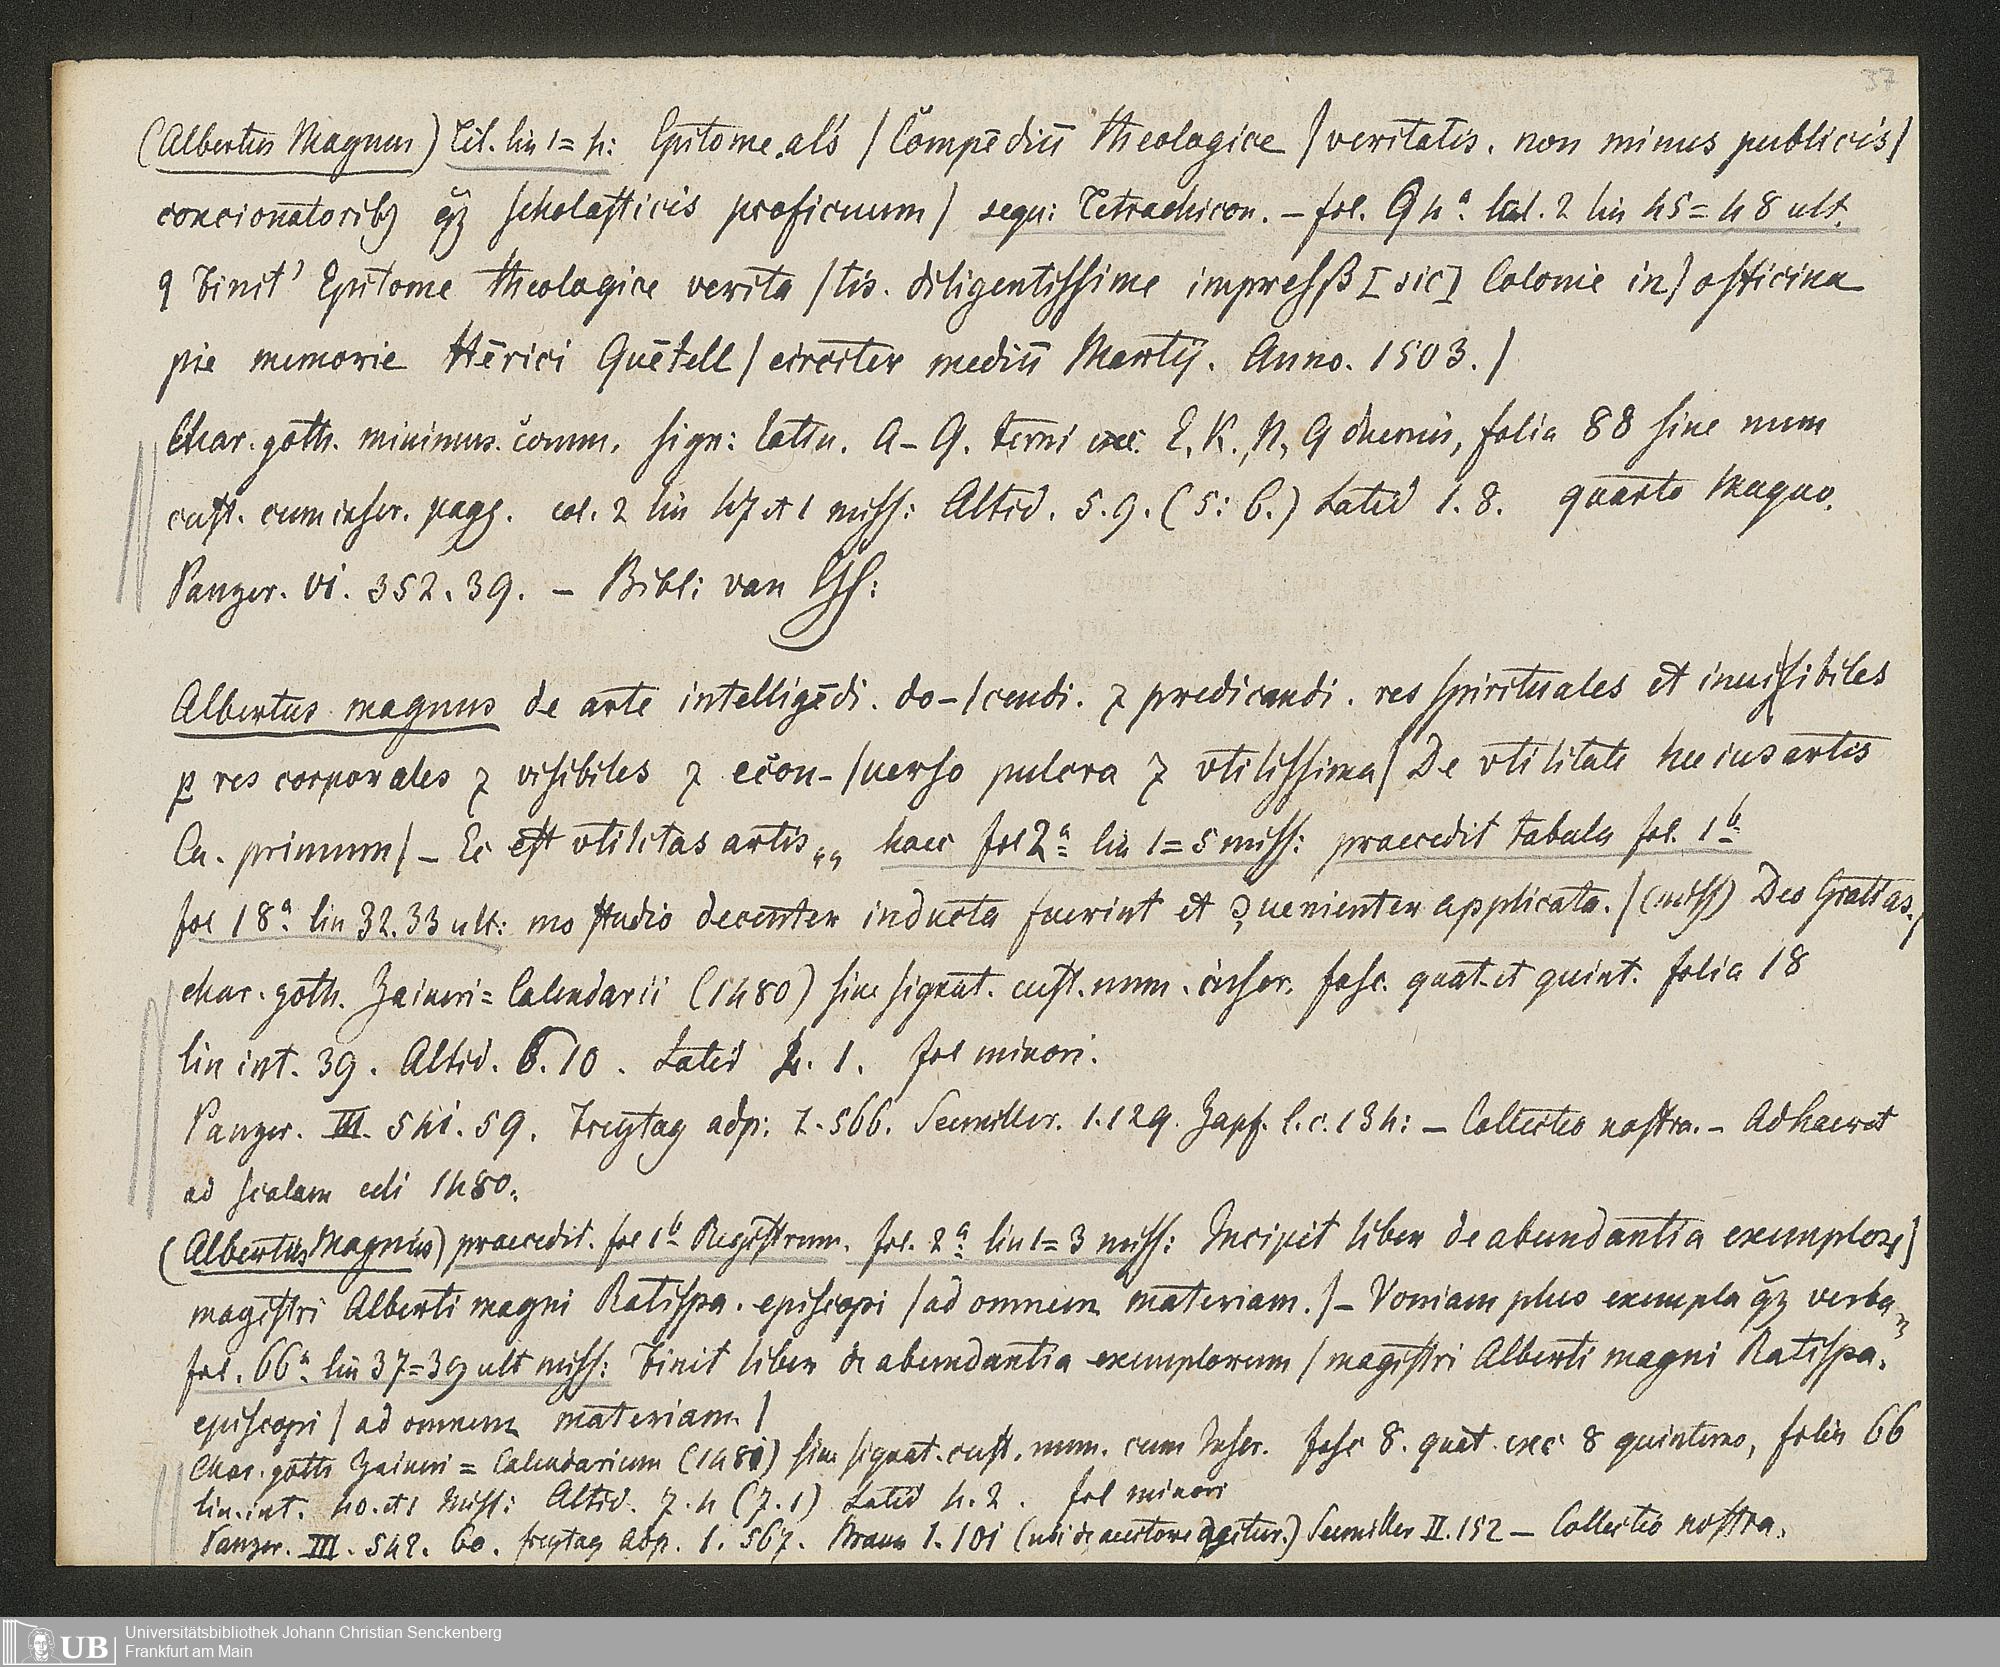 37
(Albertus Magnus) Tit. lin 1=4: Epitome. als / Compēdiū theologice / veritatis. non minus publicis /
concionatoribꝫ qꝫ scholasticis proficuum / sequ: Tetrachicon. – fol. Q 4ª. col. 2 lin 45=48 ult.
Finit' Epitome theologice verita / tis. diligentissime impressß [sic] Colonie in / officina
pie memorie Hērici Quētell / circiter mediū Martij. Anno. 1503. /
Char. goth. minimus. comm. sign: latin. A–Q. terni exc. K., N, Q duernis, folia 88 sine num
cust. cum inscr. pagg. col. 2 lin 47 et 1 miss: Altid. 5.9. (5:6.) Latid 1.8. quarto Magno.
Panzer. VI. 352. 39. – Bibl: van
Albertus magnus de arte intelligēdi. do- / cendi. ⁊ predicandi. res spirituales et inuisibiles
ꝑ res corporales ⁊ visibiles ⁊ econ- / uerso pulcra ⁊ vtilissima / De vtilitate huius artis
Ca. primum / – Ec est vtilitas artis „ haec fol 2ª lin 1=5 miss: praecedit tabula fol. 1ᵇ
fol 18ª. lin 32.33 ult: mo studio decenter inducta fuerint et ꝯuenienter applicata. / (miss) Deo Gratias. /
char. goth. Zaineri= Calendarii (1480) sine signat. cust. num. inscr. fasc. quat. et quint. folia 18
lin int. 39. Altid. 6.10. Latid 4. 1. fol minori.
Panzer. III. 541. 59. Freytag adp: 1. 566. Seemiller. 1.129. Zapf. l.c. 134: – Collectio nostra. – Adhaeret
ad scalam celi 1480.
(Albertus Magnus) praecedit. fol 1ᵇ Registrum. fol. 2ª lin 1=3 miss: Incipit liber de abundantia exemploꝝ /
magistri Alberti magni Ratispa. episcopi / ad omnem materiam. / – Voniam plus exempla qꝫ verba „
fol. 66ª. lin 37=39 ult miss: Finit liber de abundantia exemplorum / magistri Alberti magni Ratispa.
episcopi / ad omnem materiam. /
Char. goth Zaineri = Calendarium (1481) sine signat. cust. num. cum Inscr. fasc 8. quat. exc 8 quinterno, folia 66
lin. int. 40. et 1 Miss: Altid. 7. 4 (7.1) Latid 4. 2. fol minori
Panzer. III. 542. 60. freytag adp. 1. 567. Braun 1. 101 (ubi de auctore agitur.) Seemiller II. 152 – Collectio nostra.
UB
Universitätsbibliothek Johann Christian Senckenberg
Frankfurt am Main